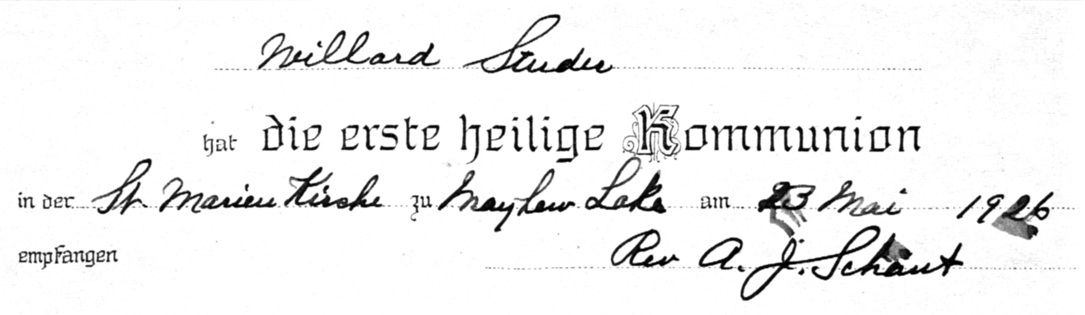 Willard Studer
hat die erste heilige Kommunion
in der St. Marien Kirche zu Mayhew Lake am 23 Mai 1926
empfangen Rev A. J. Schaut